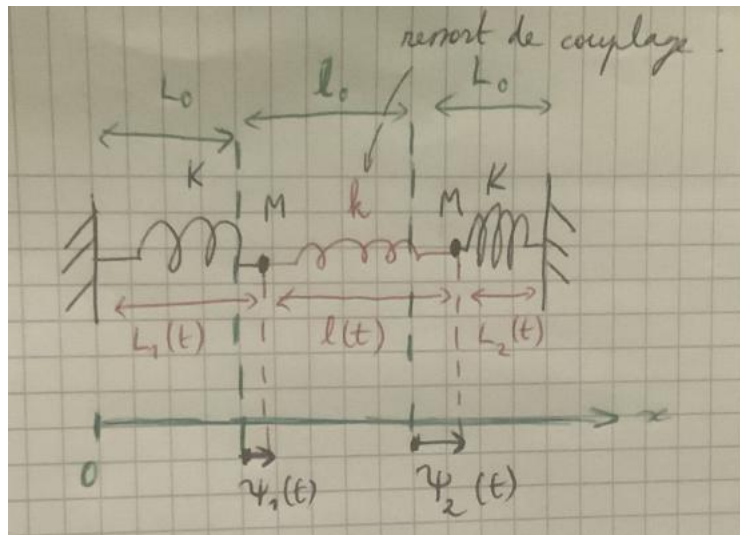 ressort de couplage.
L₀ l₀ L₀
K M k M K
L₁(t) l(t) L₂(t)
x
0
Ψ₁(t) Ψ₂(t)